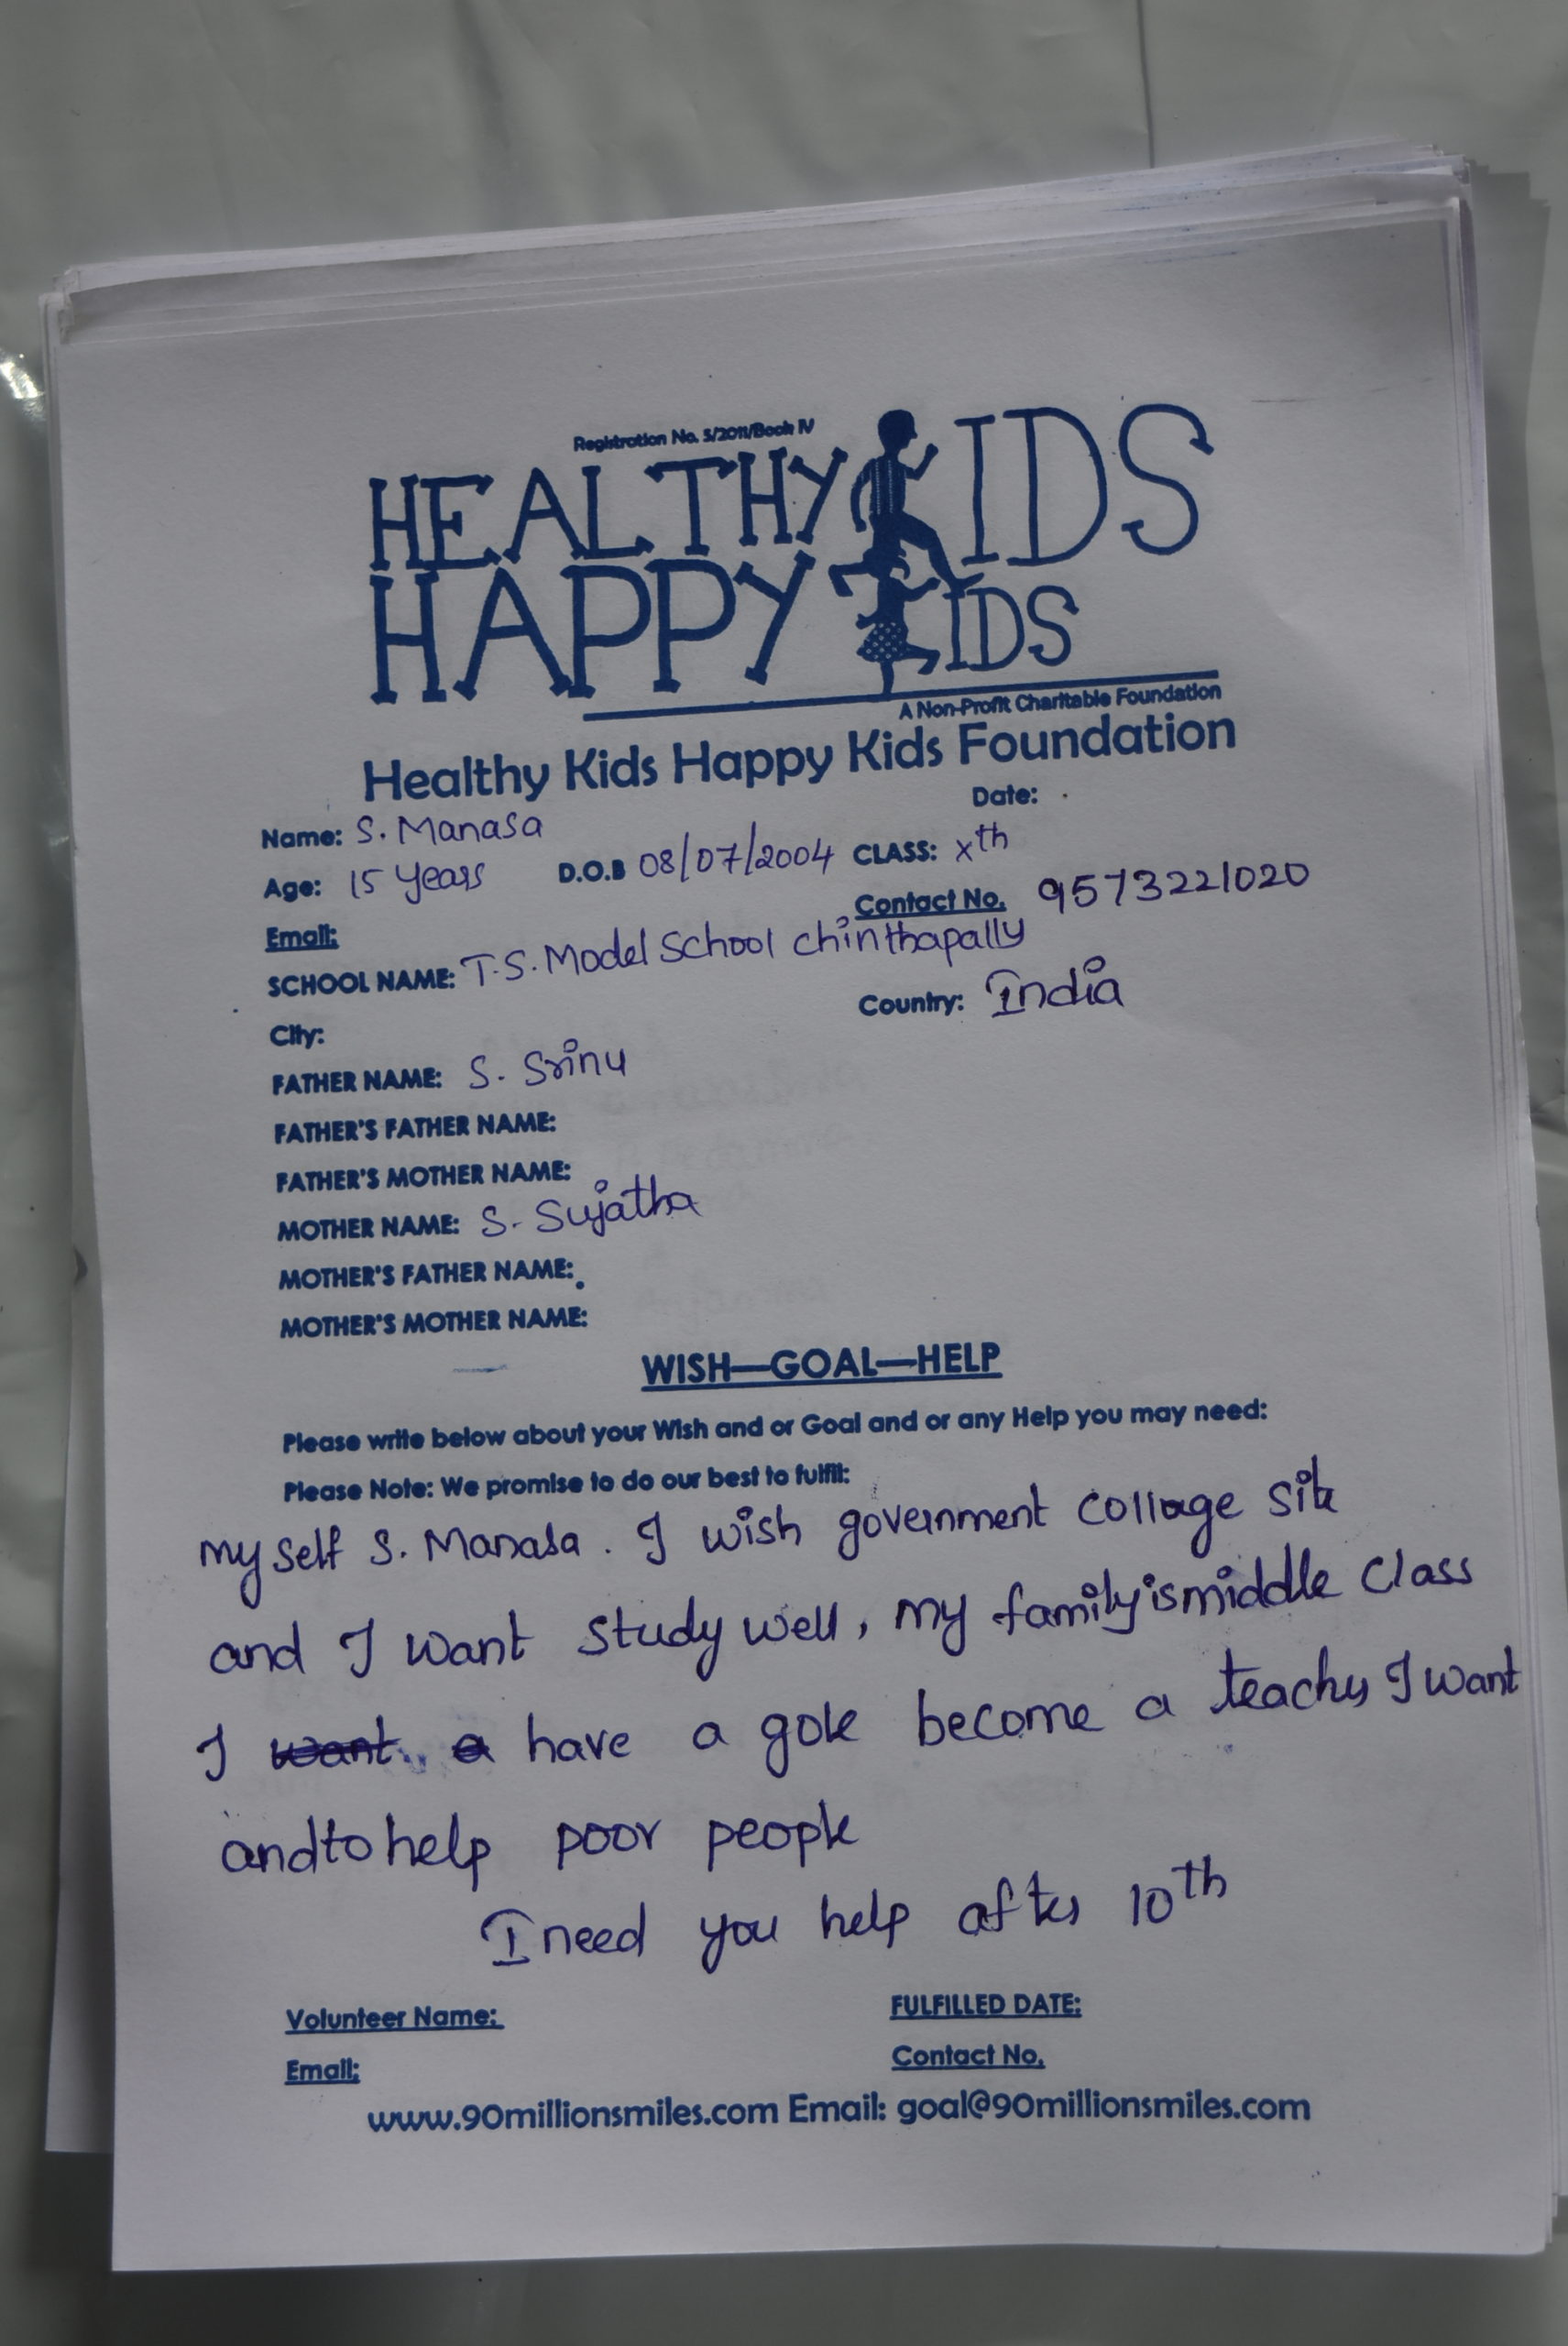 Registration No. 5/2011/Book IV
HEALTHY KIDS
HAPPY KIDS
A Non-Profit Charitable Foundation
Healthy Kids Happy Kids Foundation
Date:
Name: S. Manasa
Age: 15 years D.O.B 08/07/2004 CLASS: Xth
Email: Contact No. 9573221020
SCHOOL NAME: T.S. Model School chinthapally
City: Country: India
FATHER NAME: S. Srinu
FATHER'S FATHER NAME:
FATHER'S MOTHER NAME:
MOTHER NAME: S. Sujatha
MOTHER'S FATHER NAME:
MOTHER'S MOTHER NAME:
WISH—GOAL—HELP
Please write below about your Wish and or Goal and or any Help you may need:
Please Note: We promise to do our best to fulfil:
my self S. Manasa. I wish government collage
and I want study well, my family is middle class
I want a have a gole become a teacher I want
and to help poor people
I need you help after 10th
Volunteer Name: FULFILLED DATE:
Email: Contact No.
www.90millionsmiles.com Email: goal@90millionsmiles.com